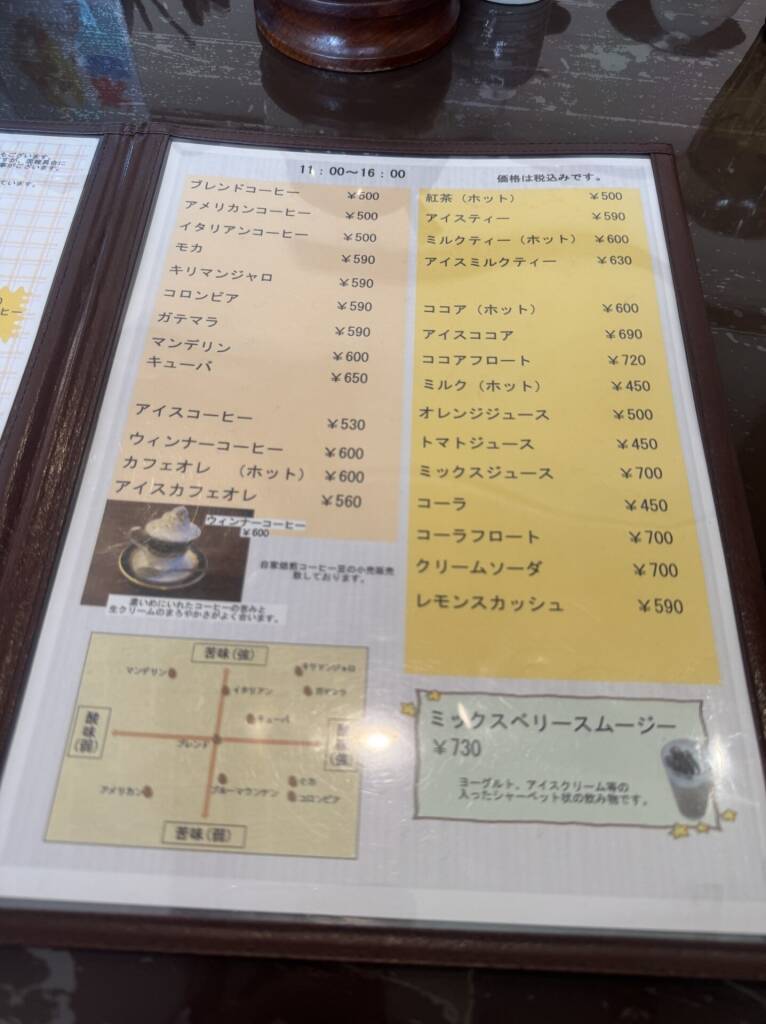 11：00～16：00
価格は税込みです。
ブレンドコーヒー ￥500
アメリカンコーヒー ￥500
イタリアンコーヒー ￥500
モカ ￥590
キリマンジャロ ￥590
コロンビア ￥590
ガテマラ ￥590
マンデリン ￥600
キューバ ￥650
アイスコーヒー ￥530
ウィンナーコーヒー ￥600
カフェオレ （ホット） ￥600
アイスカフェオレ ￥560
ウィンナーコーヒー
￥600
自家焙煎コーヒー豆の小売販売
致しております。
濃いめにいれたコーヒーの苦みと
生クリームのまろやかさがよく合います。
苦味(強)
マンデリン
キリマンジャロ
イタリアン
ガテマラ
キューバ
酸味(弱)
ブレンド
アメリカン
ブルーマウンテン
モカ
コロンビア
苦味(弱)
紅茶（ホット） ￥500
アイスティー ￥590
ミルクティー（ホット） ￥600
アイスミルクティー ￥630
ココア（ホット） ￥600
アイスココア ￥690
ココアフロート ￥720
ミルク（ホット） ￥450
オレンジジュース ￥500
トマトジュース ￥450
ミックスジュース ￥700
コーラ ￥450
コーラフロート ￥700
クリームソーダ ￥700
レモンスカッシュ ￥590
ミックスベリースムージー
￥730
ヨーグルト、アイスクリーム等の
入ったシャーベット状の飲み物です。